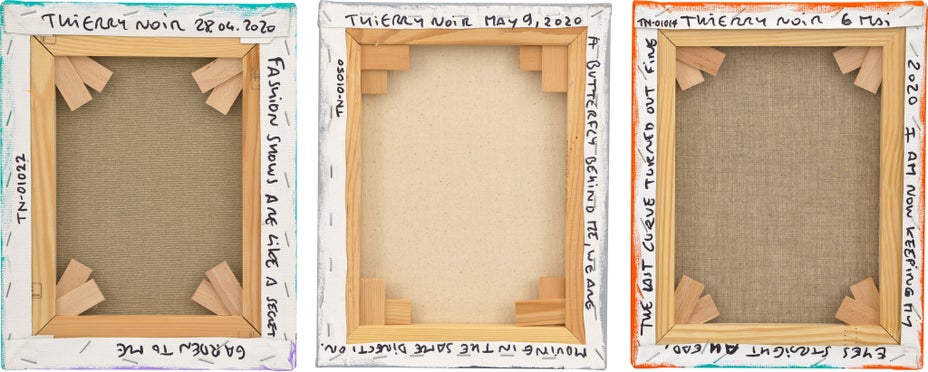 THIERRY NOIR 28.04.2020
FASHION SHOWS ARE LIKE A SECRET
GARDEN TO ME
TN-01027
THIERRY NOIR MAY 9, 2020
A BUTTERFLY BEHIND ME, WE ARE
MOVING IN THE SAME DIRECTION.
TN-01030
TN-01014 THIERRY NOIR 6 MAI
2020 I AM NOW KEEPING MY
EYES STRAIGHT AHEAD,
THE LAST CURVE TURNED OUT FINE